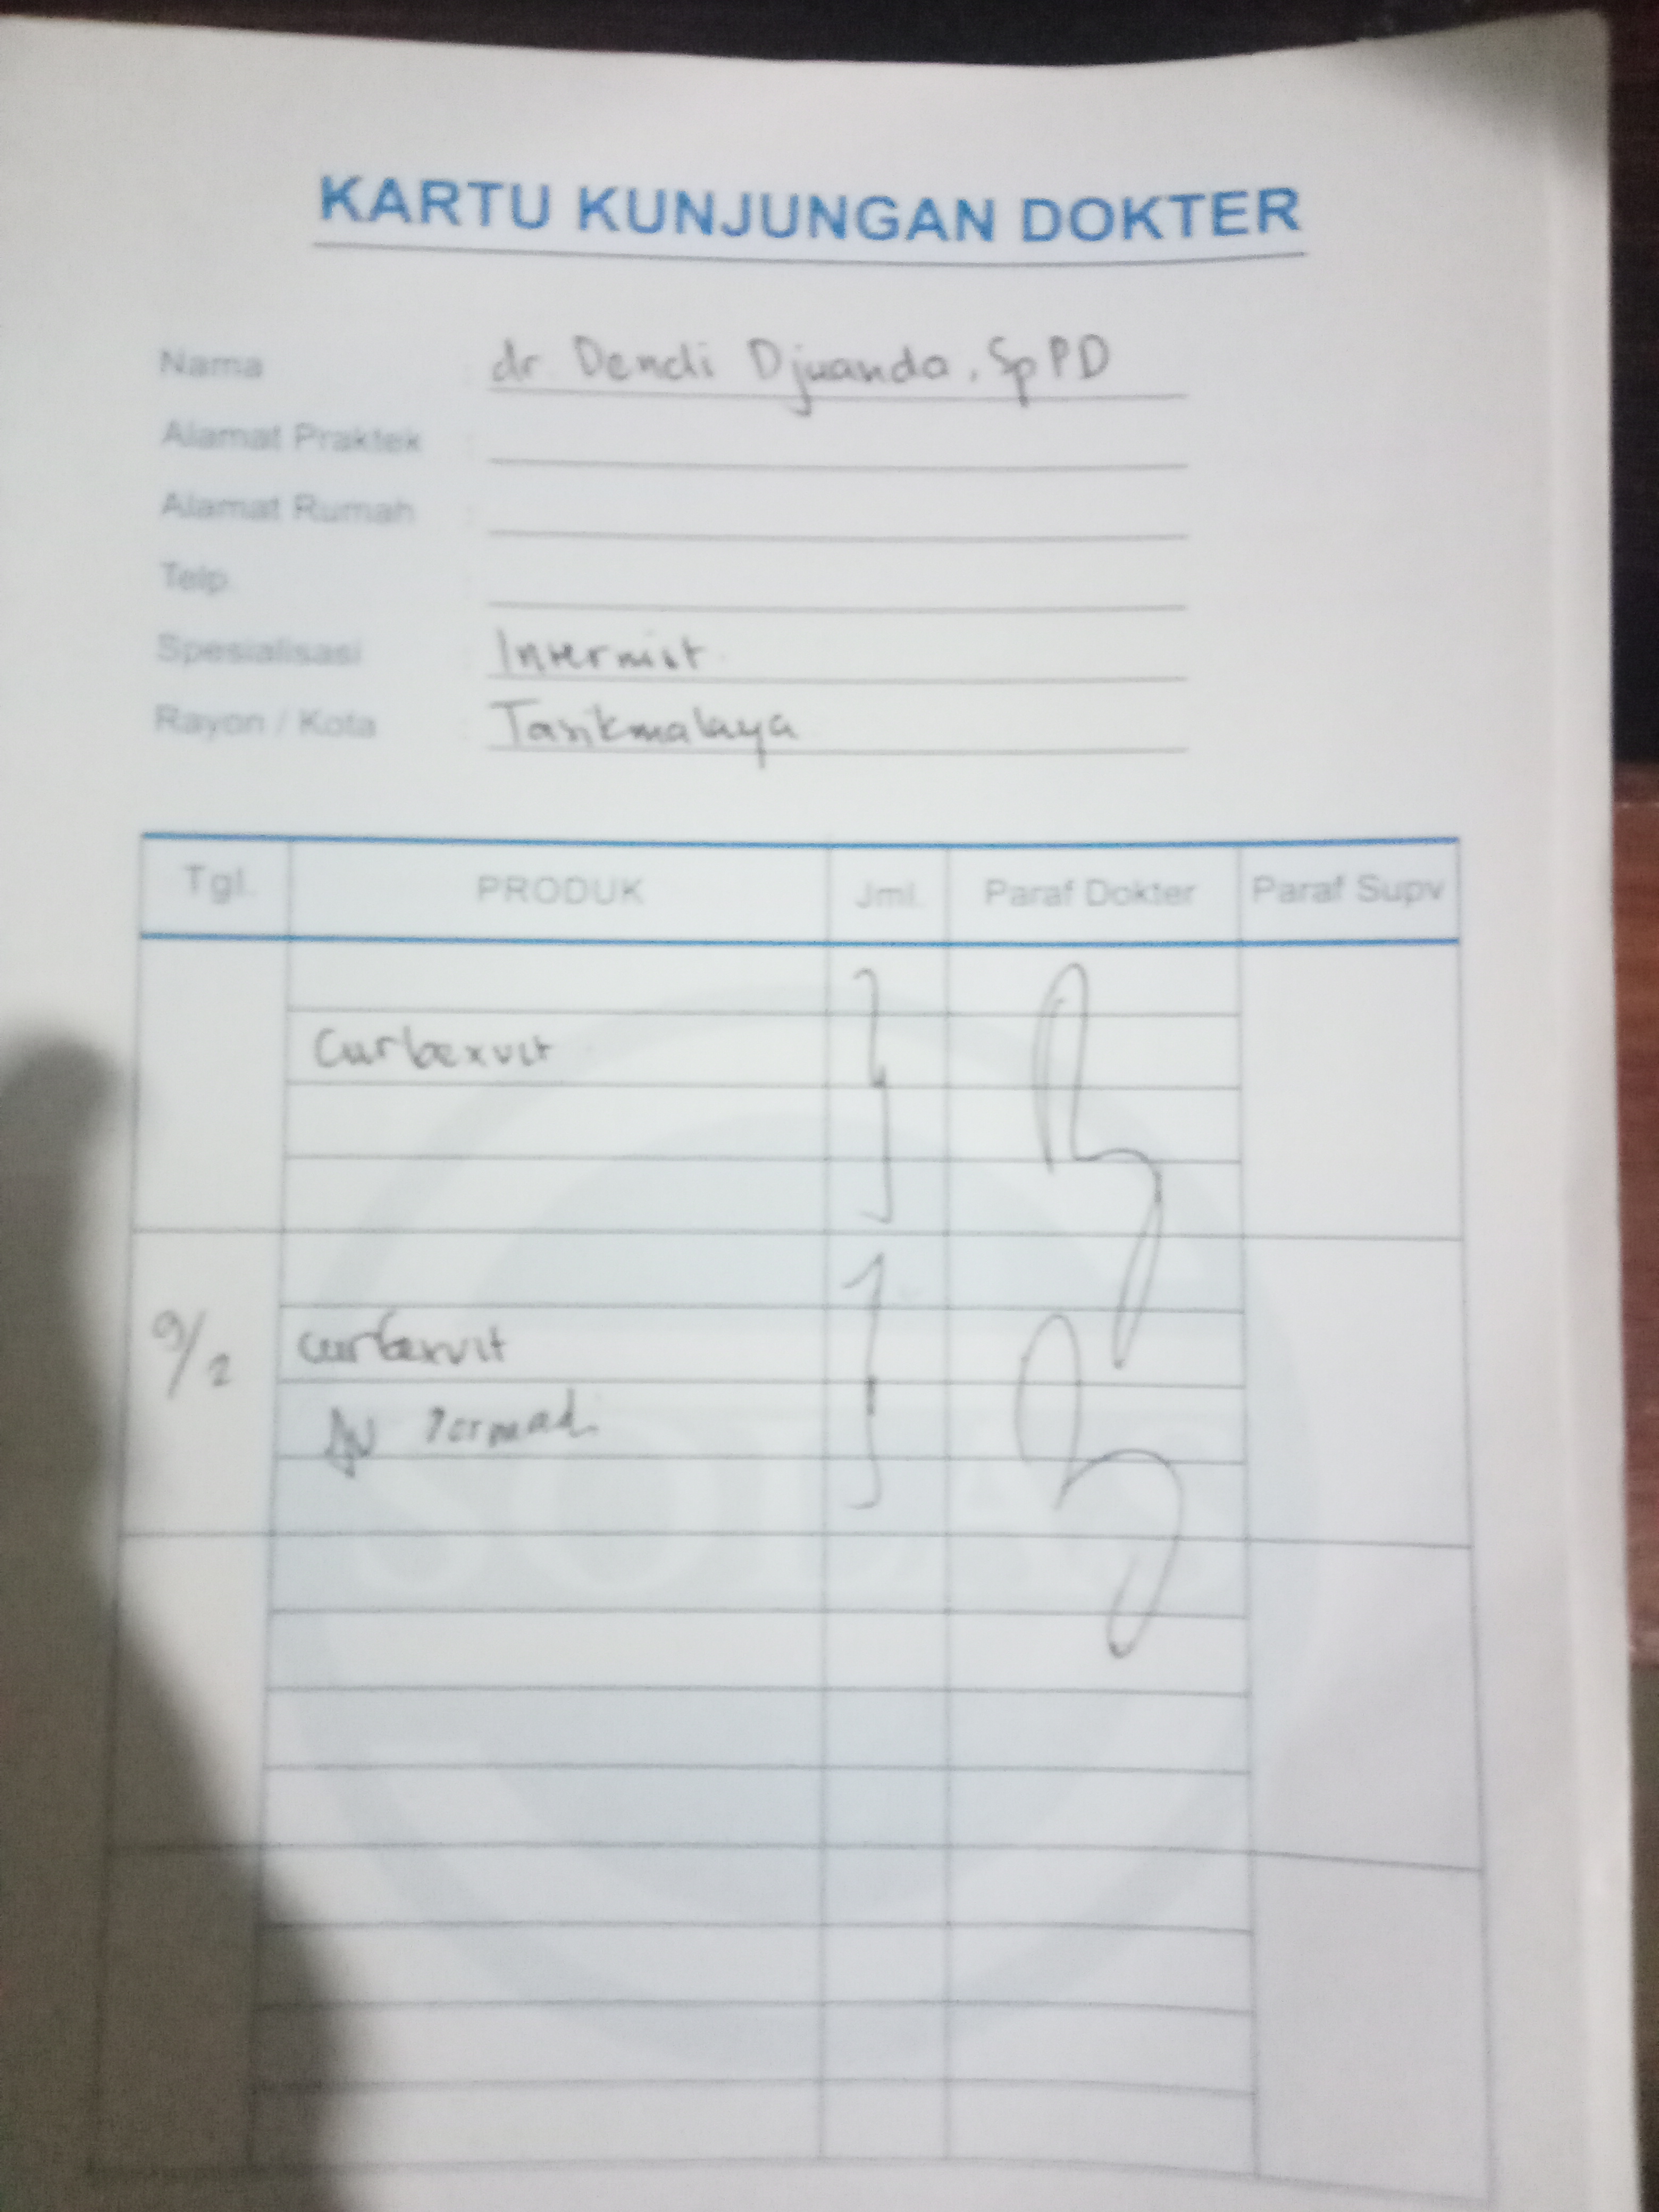 KARTU KUNJUNGAN DOKTER
Nama : dr. Dendi Djuanda, SpPD
Alamat Praktek :
Alamat Rumah :
Telp. :
Spesialisasi : Internist
Rayon / Kota : Tasikmalaya
Tgl. PRODUK Jml. Paraf Dokter Paraf Supv
Curbexvit
9/2 curbexvit
SOLAS